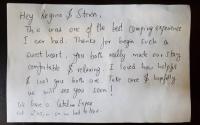 Hey Regine & Strwn,
This was one of the best camping experience
I ever had. Thanks for being such a
sweet heart, you both really made our stay
comfortable & relaxing. I loved how helpful
& cool you both are. Take care & hopefully
we will see you soon!
We have a